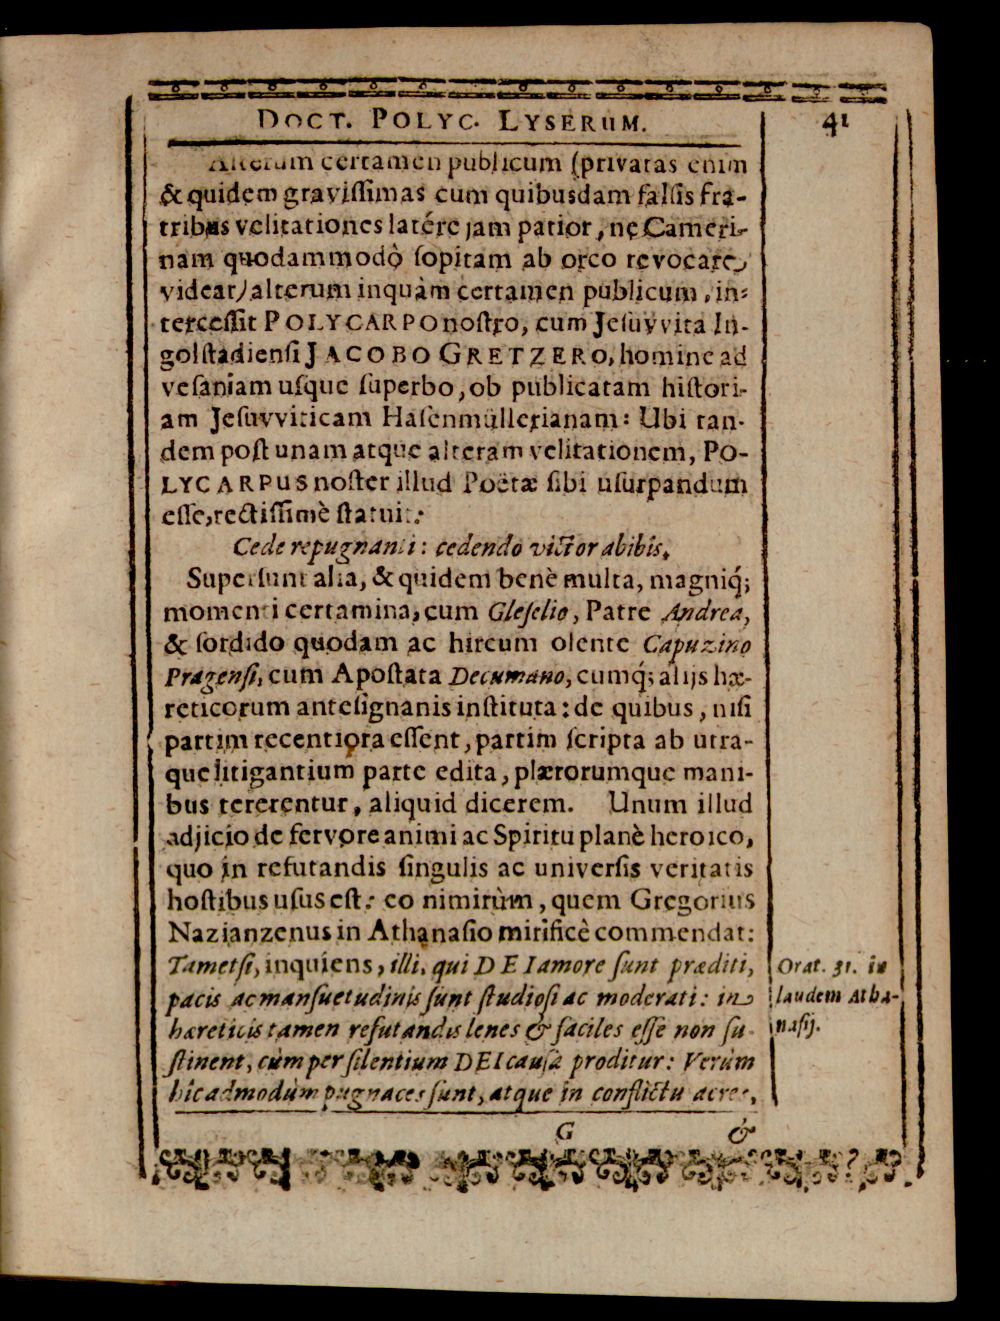 DOCT. POLYC. LYSERUM. 41
Alterum certamen publicum (privatas enim
& quidem gravissimas cum quibusdam falsis fra-
tribus velitationes latére jam patior, ne Cameri-
nam quodammodò sopitam ab orco revocare
videar) alterum inquàm certamen publicum, in-
tercessit POLYCARPO nostro, cum Jesuvvita In-
golstadiensi JACOBO GRETZERO, homine ad
vesaniam usque superbo, ob publicatam histori-
am Jesuvviticam Hasenmüllerianam: Ubi tan-
dem post unam atque alteram velitationem, PO-
LYCARPUS noster illud Poëtæ sibi usurpandum
esse, rectissimè statuit:
Cede repugnanti: cedendo victor abibis.
Supersunt alia, & quidem benè multa, magniq́;
momenti certamina, cum Gleselio, Patre Andrea,
& sordido quodam ac hircum olente Capuzino
Pragensi, cum Apostata Decumano, cumq́; alijs hæ-
reticorum antesignanis instituta: de quibus, nisi
partim recentiora essent, partim scripta ab utra-
que litigantium parte edita, plærorumque mani-
bus tererentur, aliquid dicerem. Unum illud
adjicio de fervore animi ac Spiritu planè heroico,
quo in refutandis singulis ac universis veritatis
hostibus usus est: eo nimirùm, quem Gregorius
Nazianzenus in Athanasio mirificè commendat:
Tametsi, inquiens, illi, qui DEI amore sunt præditi,
pacis ac mansuetudinis sunt studiosi ac moderati: in
hæreticis tamen refutandis lenes & faciles esse non su-
stinent, cùm per silentium DEI causa proditur: Verùm
hîc admodùm pugnaces sunt, atque in conflictu acres,
Orat. 31. in
laudem Atha-
nasij.
G &